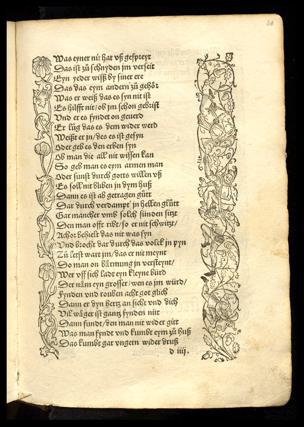 Was eyner nit hat vß gespreyt
Das ist zů schnyden jm verseit
Eyn yeder wiß by siner ere
Das das eym andern zů gehör
Was er weiß das es syn nit ist
Es hilfft nit / ob jm schon gebrist
Und er es fyndet on geuerd
Er lůg das es dem wider werd
Weißt er jn / des es ist gesyn
Oder geb es den erben syn
Ob man die all nit wissen kan
So geb man es eym armen man
Oder sunst durch gotts willen vß
Es soll nit bliben in dym huß
Dann es ist ab getragen gůtt
Dar durch verdampt jn hellen glůtt
Gar mancher vmb solch sünden sitzt
Den man offt ribt / so er nit schwitzt /
Achor behielt das nit was syn
Und brocht dar durch das volck jn pyn
Zů letst wart jm / das er nit meynt
Do man on bärmung jn versteynt /
Wer vff sich ladt eyn kleyne bürd
Der näm eyn grosser / wen es jm würd /
Fynden vnd rouben acht got glich
Dann er dyn hertz an sicht vnd dich
Vil wäger ist gantz fynden nüt
Dann fundt / den man nit wider gitt
Was man fyndt vnd kumbt eym zů huß
Das kumbt gar vngern wider druß
d iiij